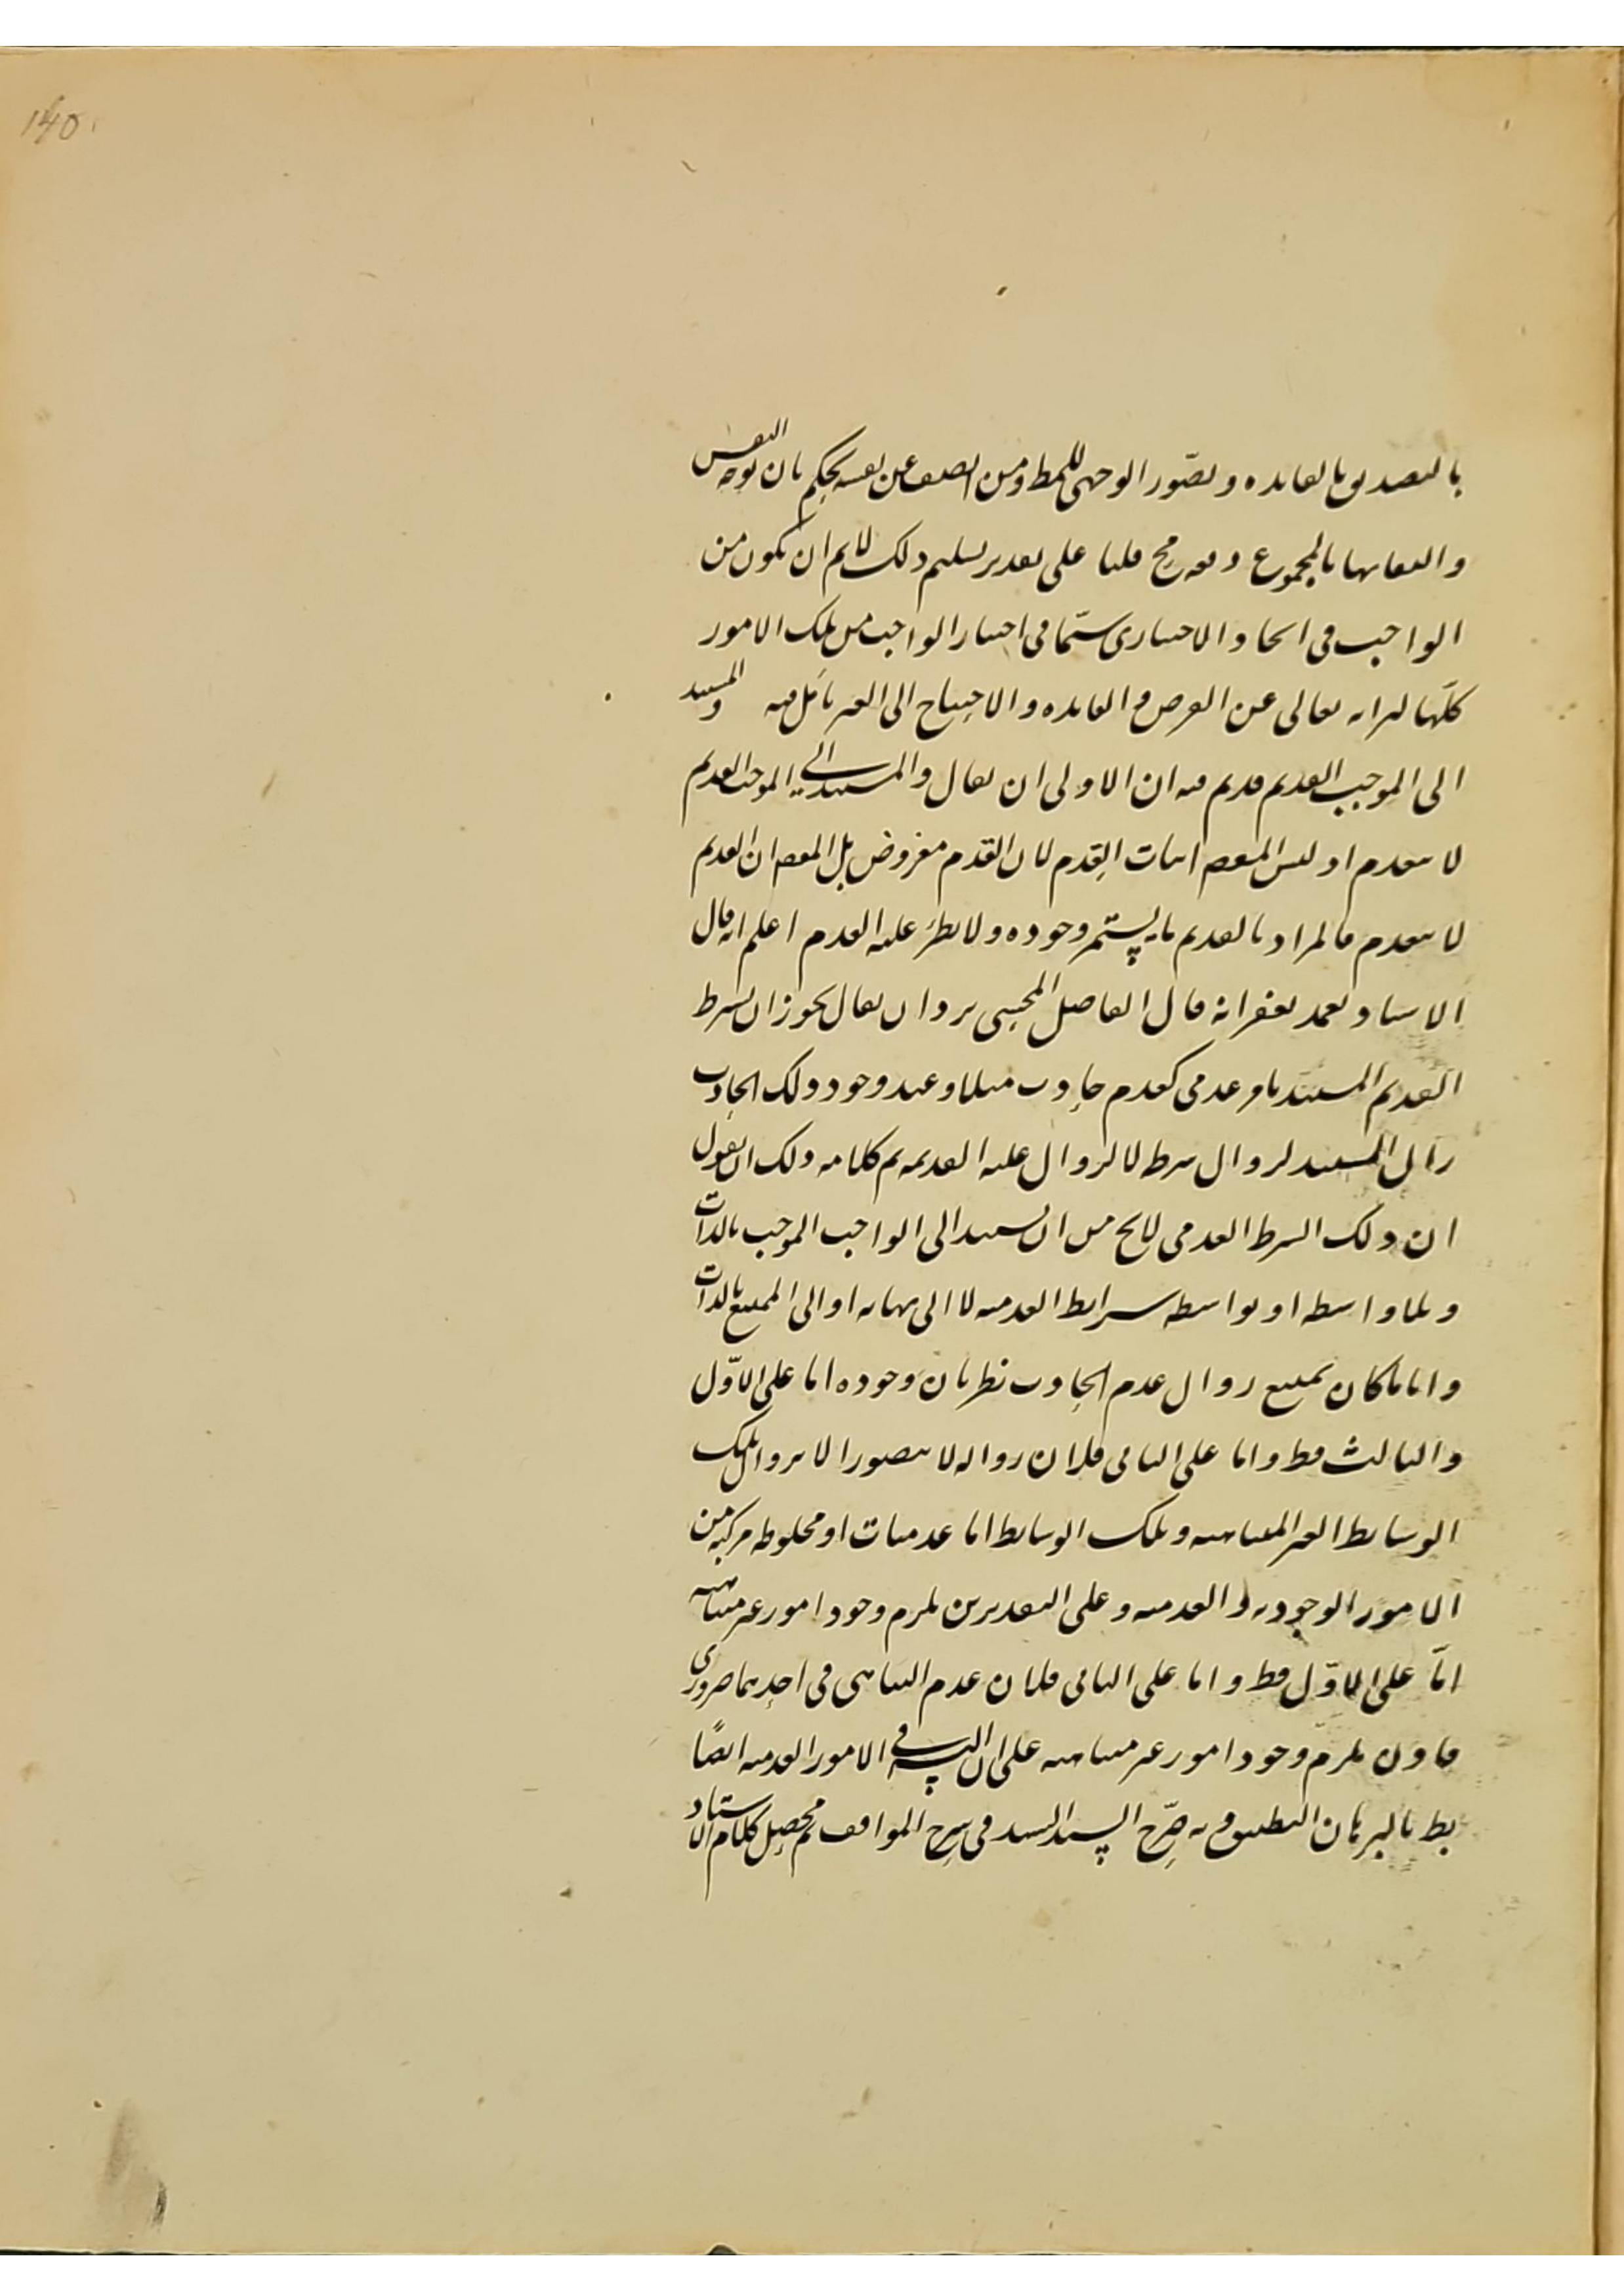 140
بالتصديق بالفايده وتصّور الوجهى للمط ومن انصف عن نفسه يحكم بان توجه النفس
والتفاتها بالمجموع دفعه مح قلنا على تقدير تسليم ذلك لانم ان تكون من
الواجب فى ايجاد الاختيارى سيّما فى اختيار الواجب من تلك الامور
كلّها لبرائه تعالى عن الغرض والفايده والاحتياج الى الغير تأمل فيه والمستند
الى الموجب القديم قديم فيه ان الاولى ان يقال والمستند الى الموجب القديم
لا ينعدم اذ ليس المقصم اثبات القِدم لان القدم مفروض بل المقصم ان القديم
لا ينعدم فالمراد بالقديم ما يستمّر وجوده ولا يطرَء عليه العدم اعلم انه قال
الاستاد تغمد بغفرانه قال الفاضل المحشى يرد ان يقال يجوز ان يشرط
القديم المستند بامر عدمى كعدم حادث مثلا وعند وجود ذلك الحادث
زال المستند لزوال شرطه لا لزوال علته القديمه تم كلامه ولك ان تقول
ان ذلك الشرط العدمى لايخ من ان يستند الى الواجب الموجب بالذات
وبلا واسطه او بواسطه شرايط العدميه لا الى نهايه او الى الممتنع بالذات
واياما كان يمتنع زوال عدم الحادث نظريان وجوده اما على الاوّل
والثالث فظ واما على الثانى فلان زواله لا يتصور الا بزوال تلك
الوسايط الغير المتناهيه وتلك الوسايط اما عدميات او مخلوطه مركبه من
الامور الوجوديه والعدميه وعلى التقديرين يلزم وجود امور غير متناهيه
امّا على الاوّل فظ واما على الثانى فلان عدم التناهى فى احديهما ضرورى
فاذن يلزم وجود امور غير متناهيه على ان التس فى الامور العدميه ايضًا
بط بالبرهان التطبيق به صّرح السيد السند فى شرح المواقف ثم محصل كلام الاستاد